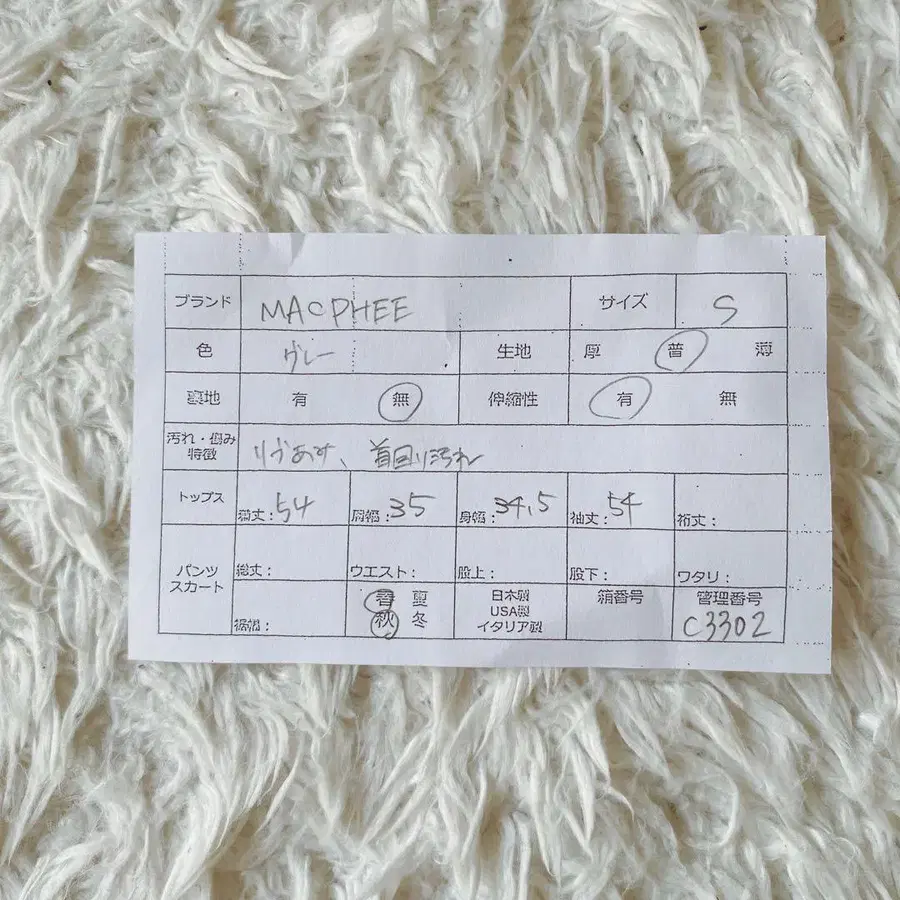 ブランド MACPHEE サイズ S
色 グレー 生地 厚 普 薄
裏地 有 無 伸縮性 有 無
汚れ・傷み
特徴 リブあみ、首回り汚れ
トップス 着丈：54 肩幅：35 身幅：34,5 袖丈：54 裄丈：
パンツ
スカート 総丈： ウエスト： 股上： 股下： ワタリ：
裾幅： 春 夏
秋 冬 日本製
USA製
イタリア製 箱番号 管理番号
C3302